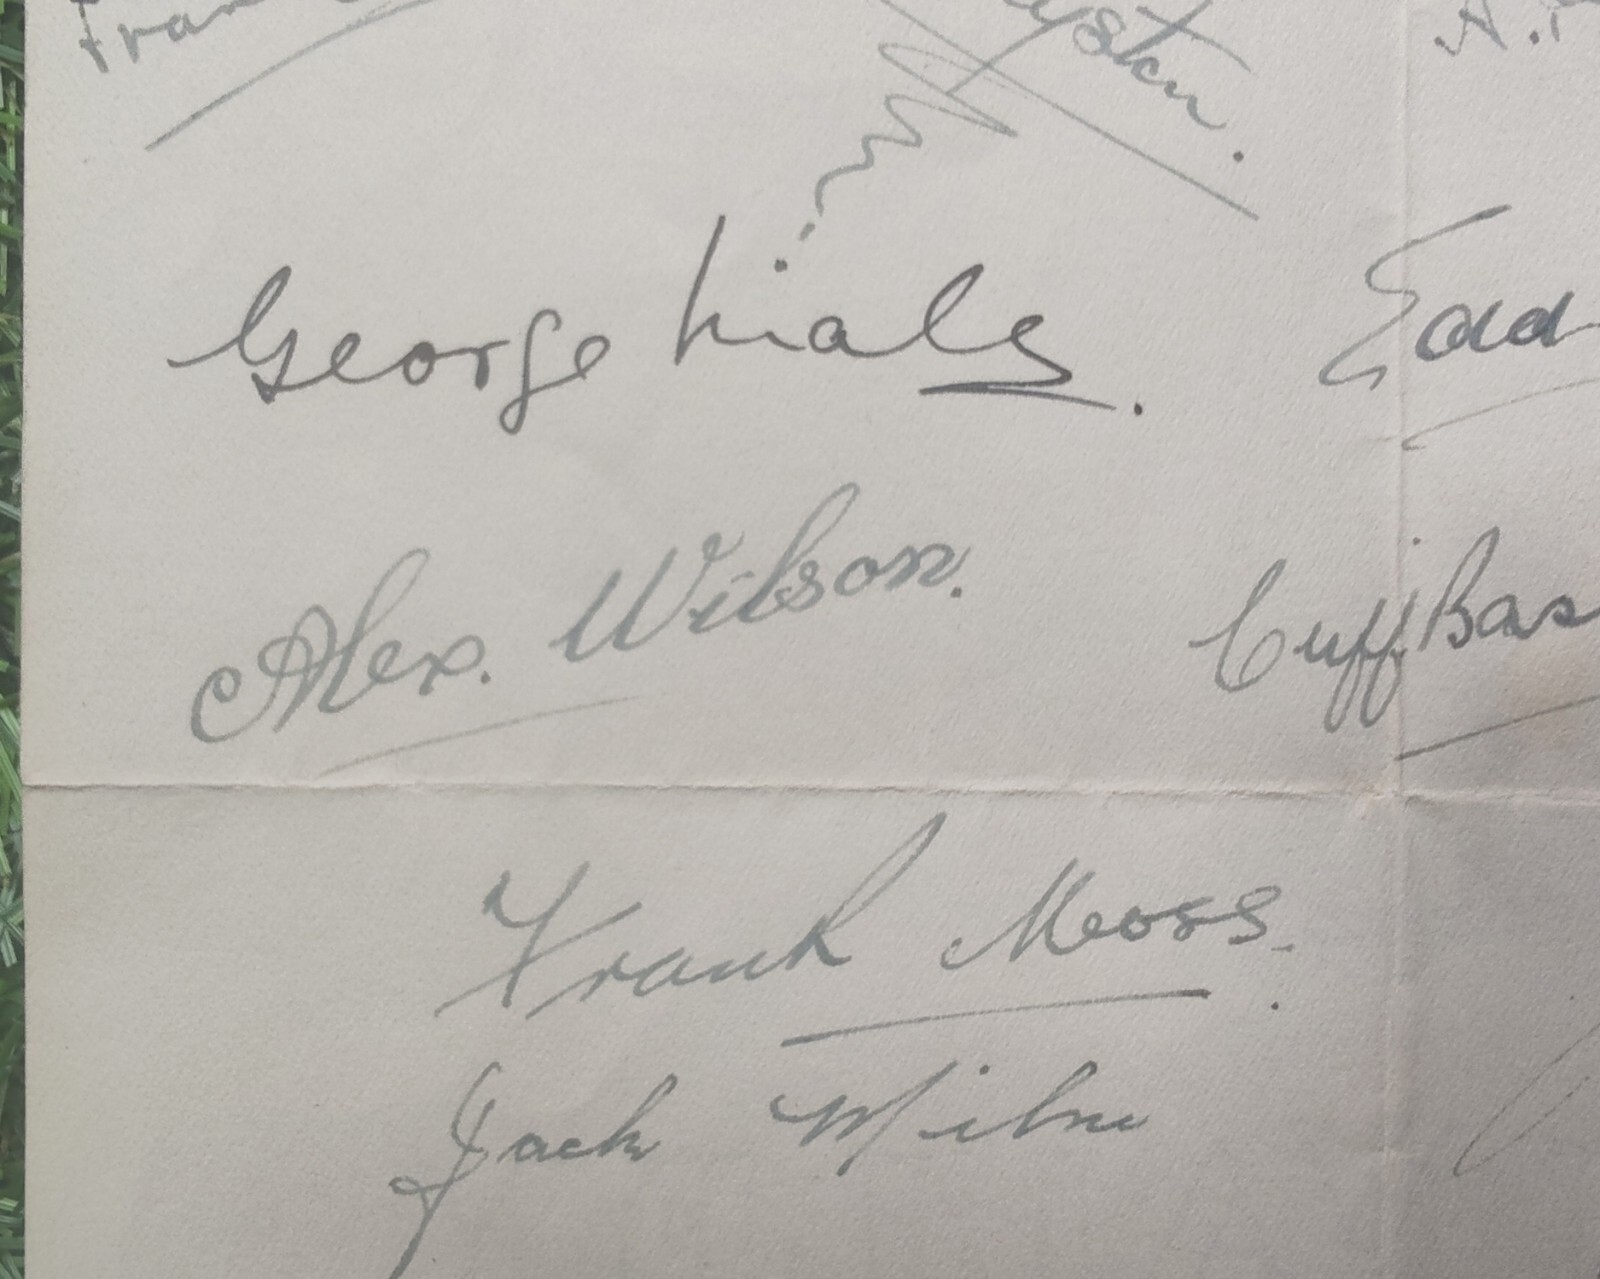 Fran
yston.
A.
George Male.
Edd
Alex. Wilson.
Cliff Bas
Frank Moss.
Jack Milne